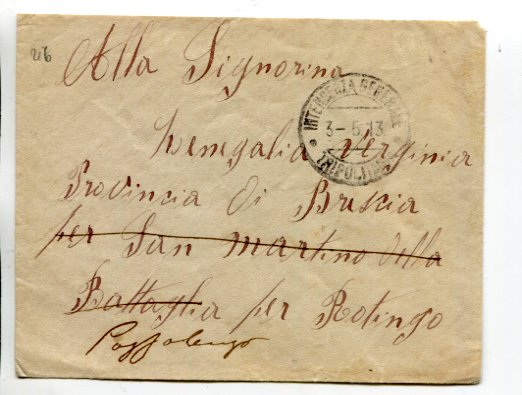 216
Alla Signorina
INTENDENZA GENERALE
3-5 13
TRIPOLI
Venegalia Verginia
Provincia di Brescia
per San Martino della
Battaglia per Rotingo
Pozzolengo